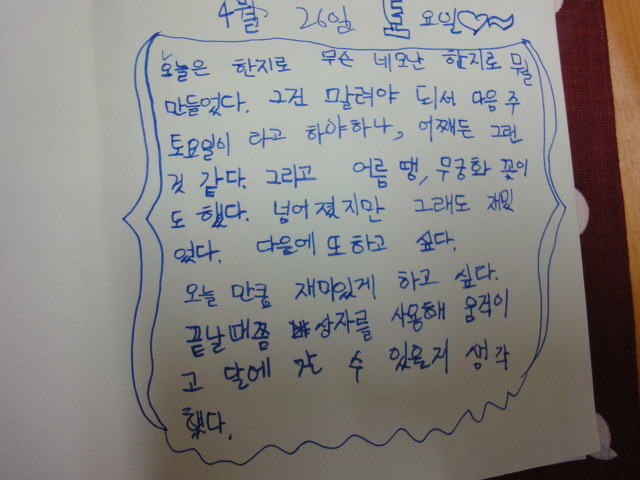 4월 26일 토요일♡~
오늘은 한지로 무슨 네모난 한지로 뭘
만들었다. 그건 말려야 되서 다음 주
토요일이 라고 하야하나, 어째든 그런
것 같다. 그리고 어름 땡, 무궁화 꽃이
도 했다. 넘어졌지만 그래도 재밌
었다. 다음에 또 하고 싶다.
오늘 만큼 재미있게 하고 싶다.
끝날때쯤 상자를 사용해 움직이
고 달에 갈 수 있을지 생각
했다.